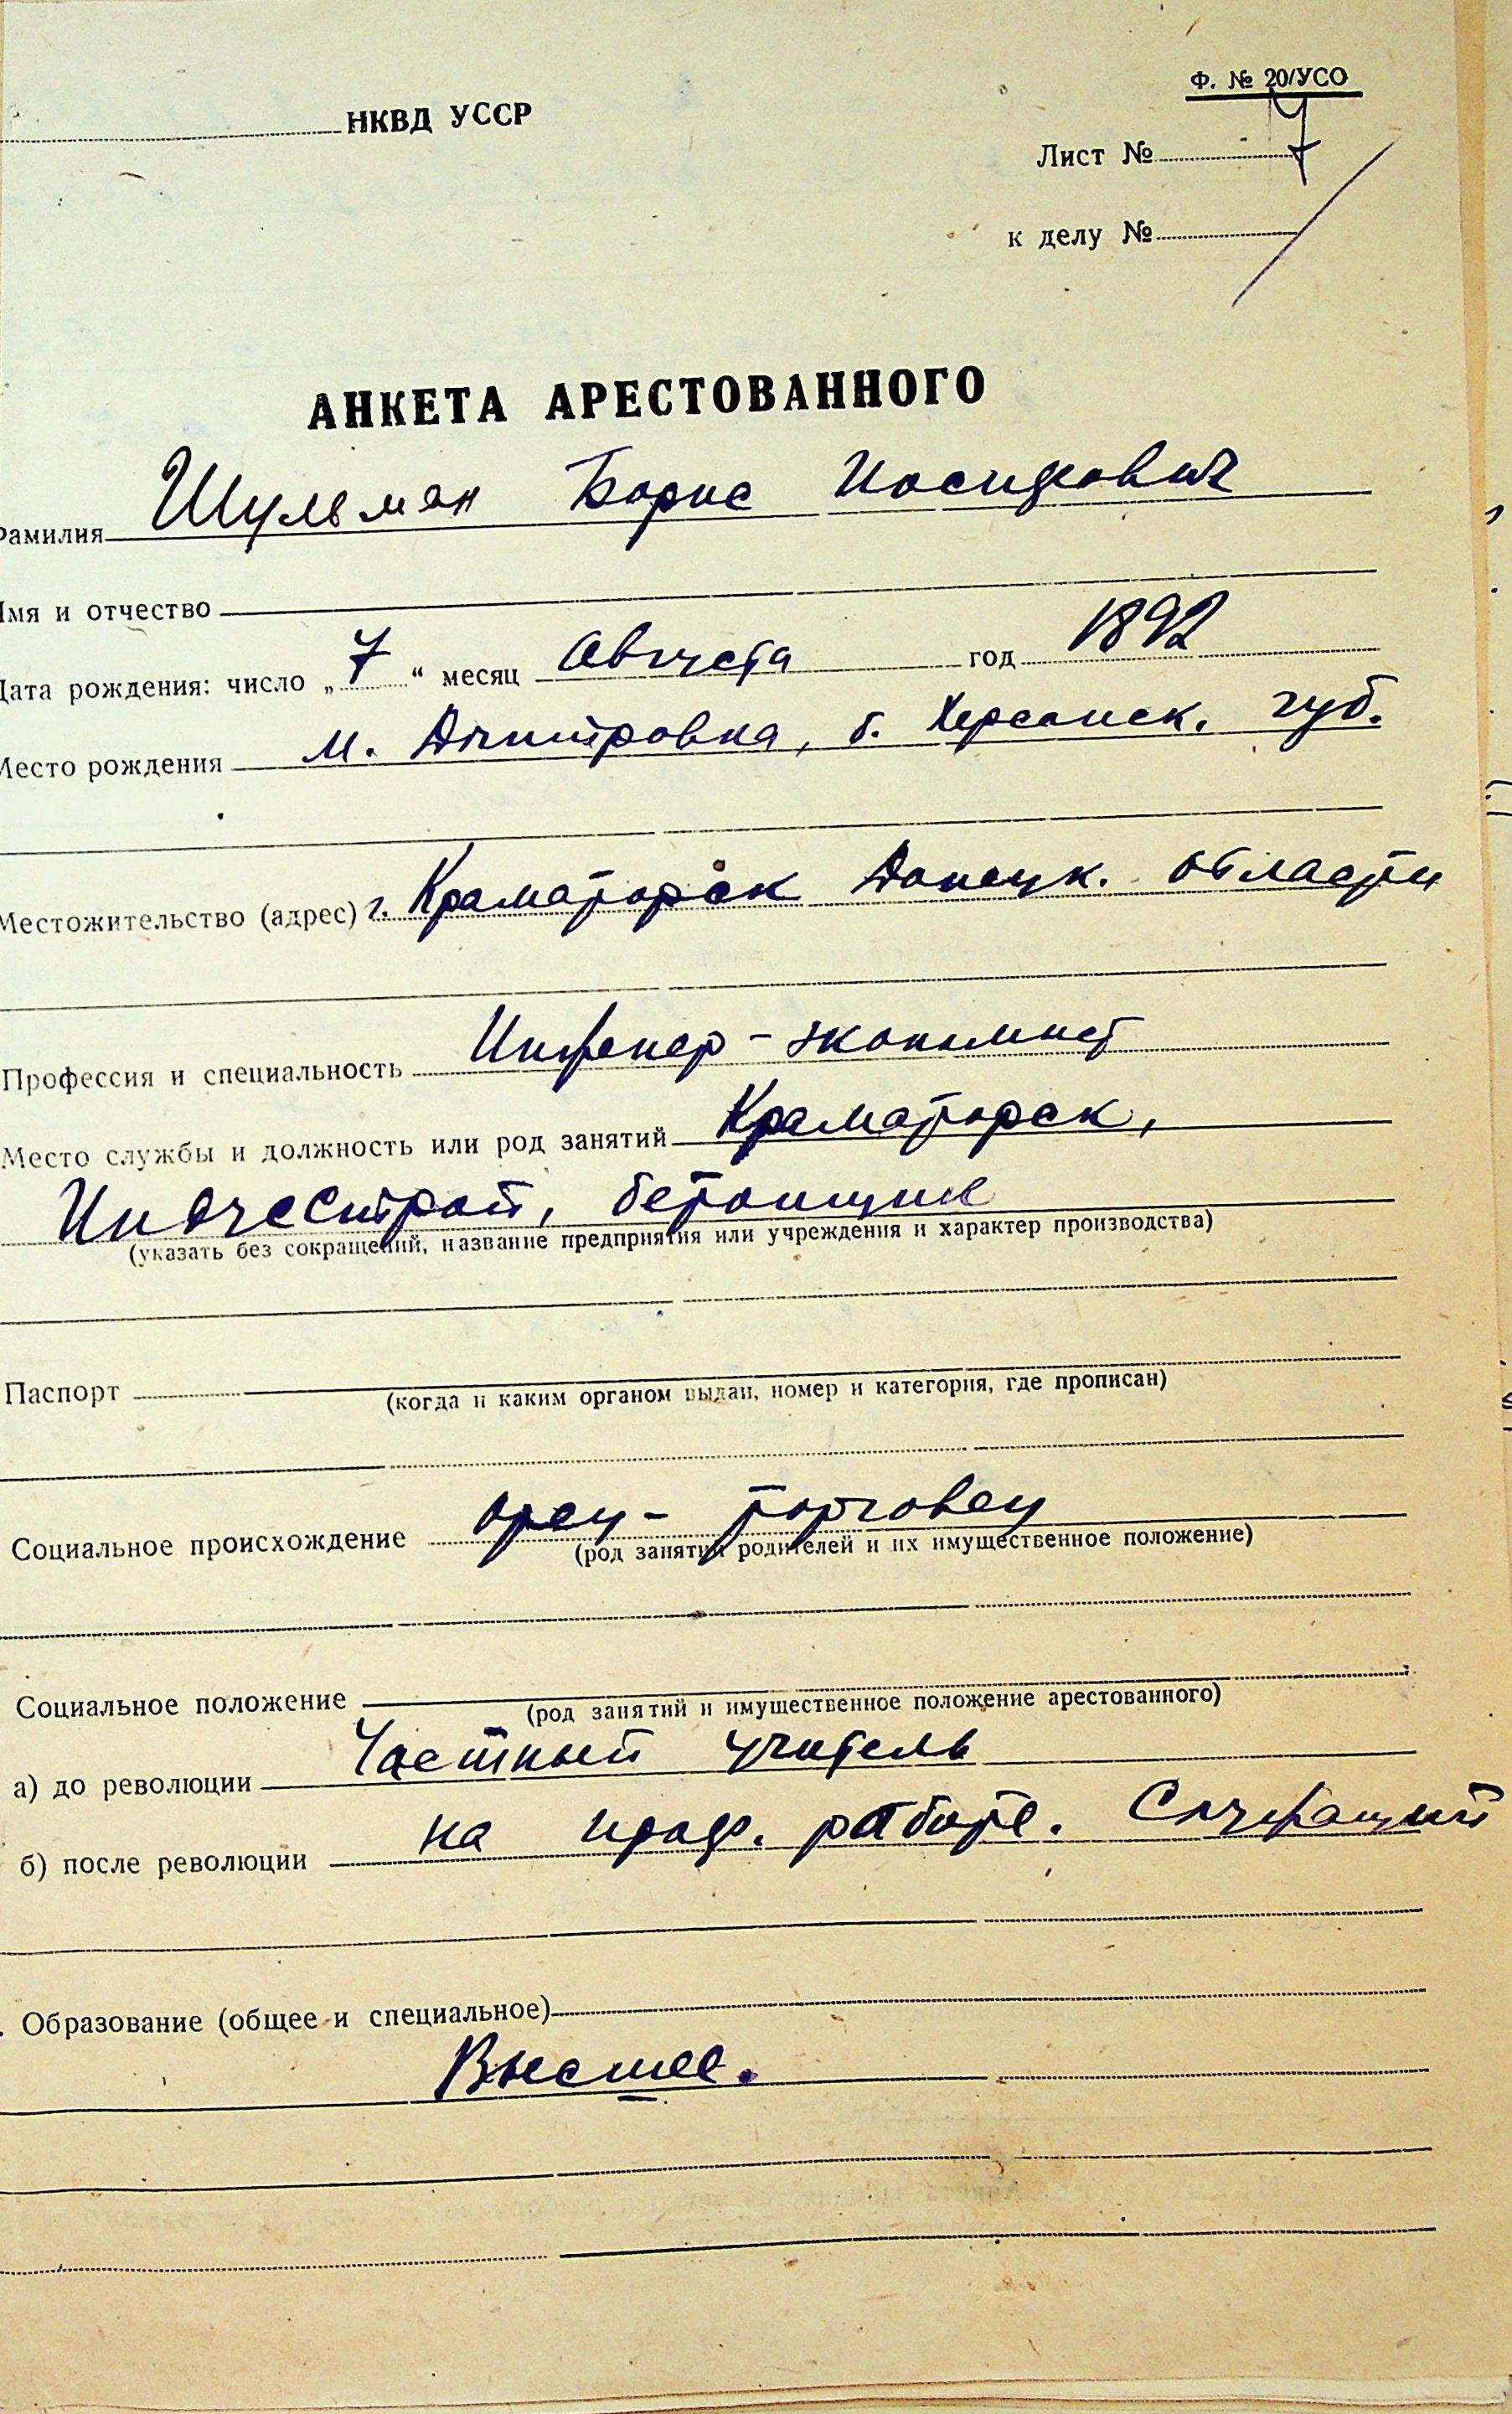 Ф. № 20/УСО
НКВД УССР
Лист № 7
к делу №
АНКЕТА АРЕСТОВАННОГО
Фамилия Шульман Борис Иосифович
Имя и отчество
Дата рождения: число „7“ месяц Августа год 1892
Место рождения м. Дмитровка, б. Херсонск. губ.
Местожительство (адрес) г. Краматорск Донецк. области
Профессия и специальность Инженер-экономист
Место службы и должность или род занятий Краматорск,
Индустрой, бетонщик
(указать без сокращений, название предприятия или учреждения и характер производства)
Паспорт
(когда и каким органом выдан, номер и категория, где прописан)
Социальное происхождение Отец - торговец
(род занятий родителей и их имущественное положение)
Социальное положение
(род занятий и имущественное положение арестованного)
а) до революции Частный учитель
б) после революции на проф. работе. Служащий
. Образование (общее и специальное)
Высшее.